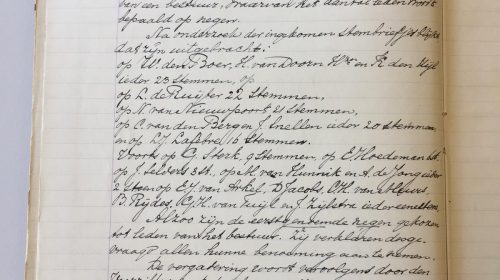 van een bestuur, waarvan het aantal leden wordt
bepaald op negen.
Na onderzoek der ingekomen stembriefjes blijkt
dat zijn uitgebracht:
op W. den Boer, H. van Doorn Wz en R. den Uijl
ieder 23 stemmen, op
op L. de Ruijter 22 stemmen,
op N. van Nieuwpoort 21 stemmen,
op C. van den Berg en J. Snellen ieder 20 stemmen
en op L.J. Lafebre 16 stemmen.
Voorts op G. Sterk, 9 stemmen, op E. Hoedeman 6 st.
op J. Selders 3 st. op M. van Hunnik en A. de Jong ieder
2 stem op E.J. van Arkel, D. Jacobs, C.H. van
B. Rijdes, C.H. van Zuijl en J. Zijlstra ieder een stem.
Alzoo zijn de eerstgenoemde negen gekozen
tot leden van het bestuur. Zij verklaren desge-
vraagd allen hunne benoeming aan te nemen.
De vergadering wordt vervolgens door den